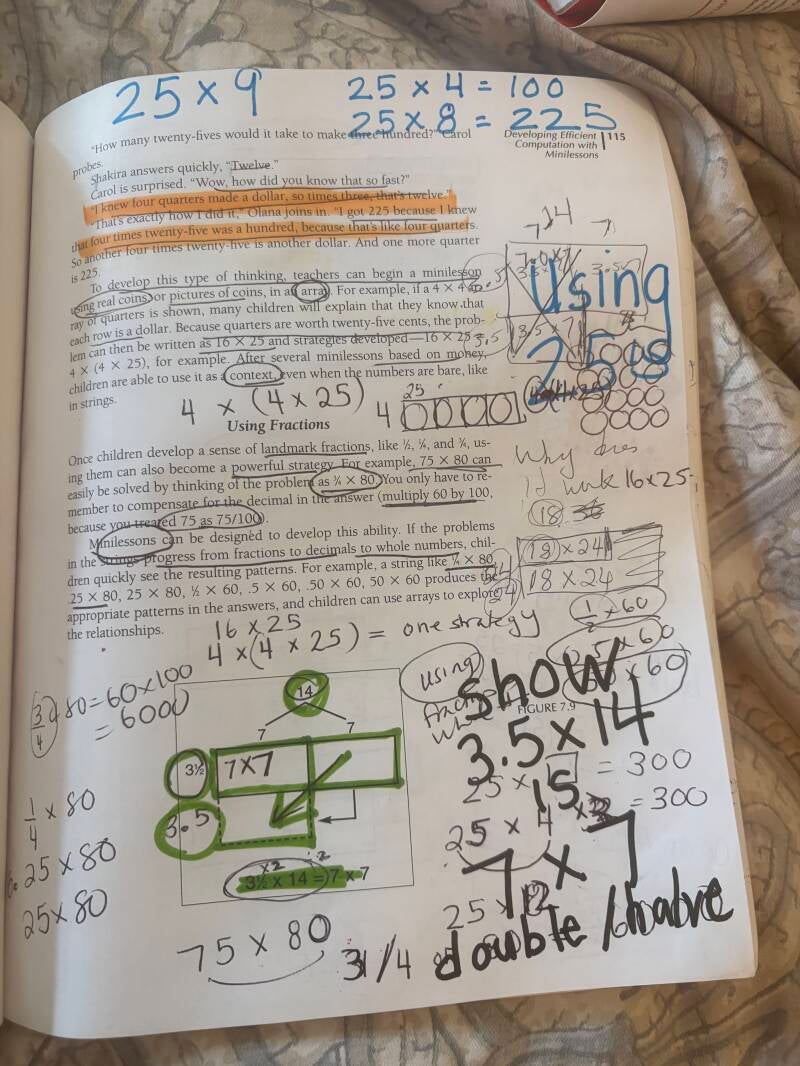 25 × 9
25 × 4 = 100
25 × 8 = 225
"How many twenty-fives would it take to make three hundred?" Carol
probes.
Developing Efficient | 115
Computation with
Minilessons
Shakira answers quickly, "Twelve."
Carol is surprised. "Wow, how did you know that so fast?"
"I knew four quarters made a dollar, so times three, that's twelve."
"That's exactly how I did it," Olana joins in. "I got 225 because I knew
that four times twenty-five was a hundred, because that's like four quarters.
So another four times twenty-five is another dollar. And one more quarter
is 225."
To develop this type of thinking, teachers can begin a minilesson
using real coins or pictures of coins, in an array. For example, if a 4 × 4 ar-
ray of quarters is shown, many children will explain that they know that
each row is a dollar. Because quarters are worth twenty-five cents, the prob-
lem can then be written as 16 × 25 and strategies developed—16 × 25 =
4 × (4 × 25), for example. After several minilessons based on money,
children are able to use it as a context, even when the numbers are bare, like
in strings.
14
7 7
3.5 × 7
Using
25s
4 × (4 × 25)
4
25
Using Fractions
Once children develop a sense of landmark fractions, like ½, ¼, and ¾, us-
ing them can also become a powerful strategy. For example, 75 × 80 can
easily be solved by thinking of the problem as ¾ × 80. You only have to re-
member to compensate for the decimal in the answer (multiply 60 by 100,
because you treated 75 as 75/100).
Minilessons can be designed to develop this ability. If the problems
in the strings progress from fractions to decimals to whole numbers, chil-
dren quickly see the resulting patterns. For example, a string like ¼ × 80,
.25 × 80, 25 × 80, ½ × 60, .5 × 60, .50 × 60, 50 × 60 produces the
appropriate patterns in the answers, and children can use arrays to explore
the relationships.
Why does
it work 16 × 25
18
18 × 24
18 × 24
1/2 × 60
.5 × 60
× 60
16 × 25
4 × (4 × 25) = one strategy
3/4 × 80 = 60 × 100
= 6000
1/4 × 80
0.25 × 80
25 × 80
14
7 7
3½ 7 × 7
3.5
×2 ÷2
3½ × 14 = 7 × 7
using
show
FIGURE 7.9
3.5 × 14
25 × = 300
15
25 × 4 × 3 = 300
7 × 7
25 × 12
double / halve
75 × 80
3/4